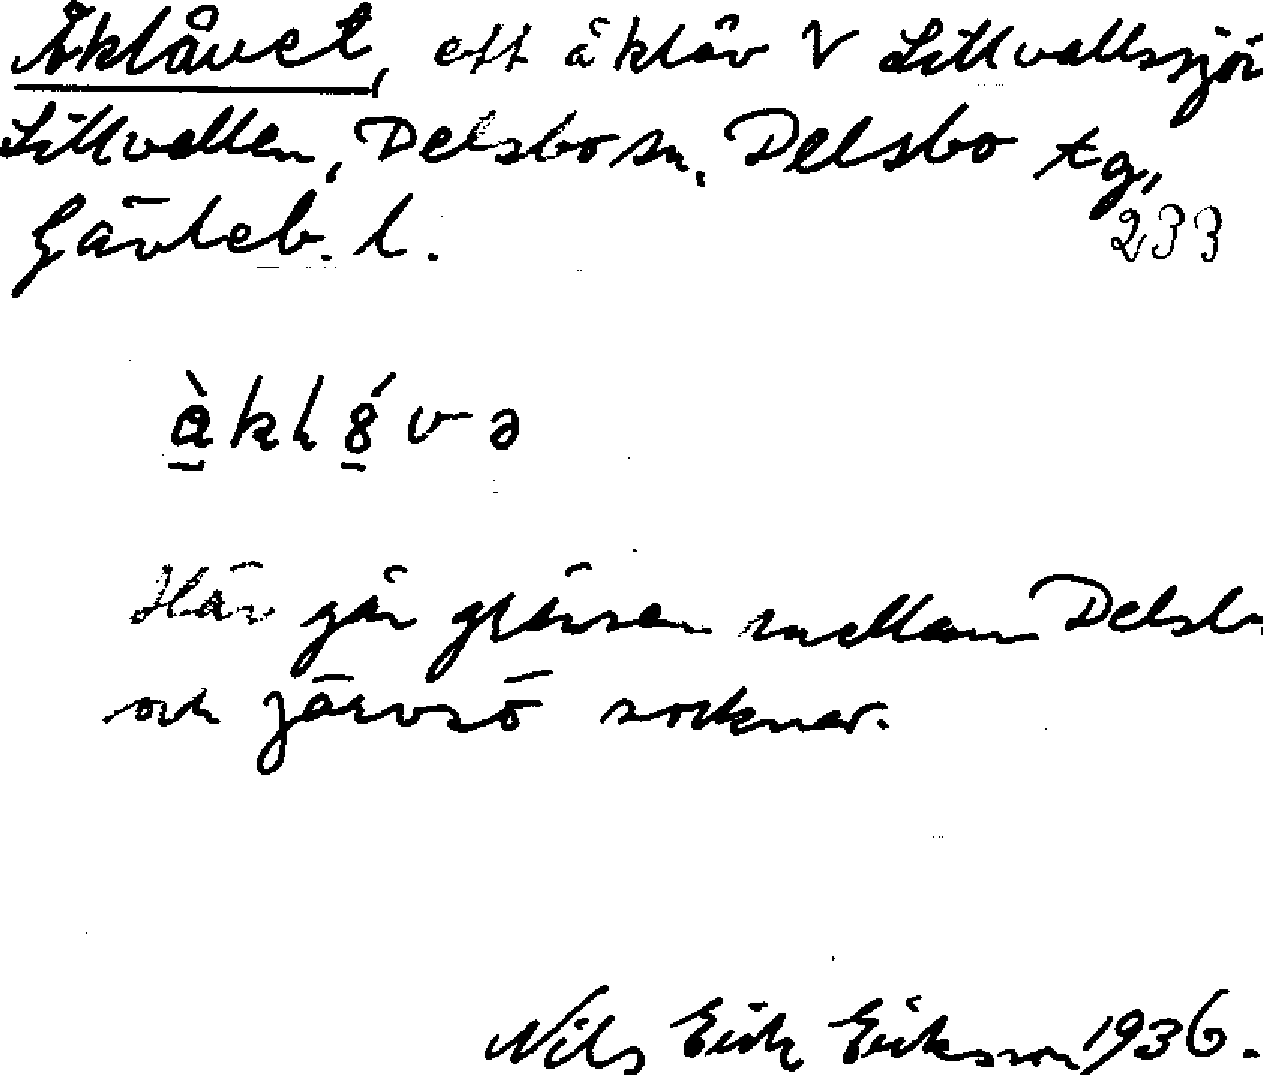 Åklåvet, ett åklåv V Lillvallssjön
Lillvallen, Delsbo sn, Delsbo tg,
Gävleb. l.
233
Här går gränsen mellan Delsbo
och Järvsö socknar.
Nils Erik Eriksson 1936.